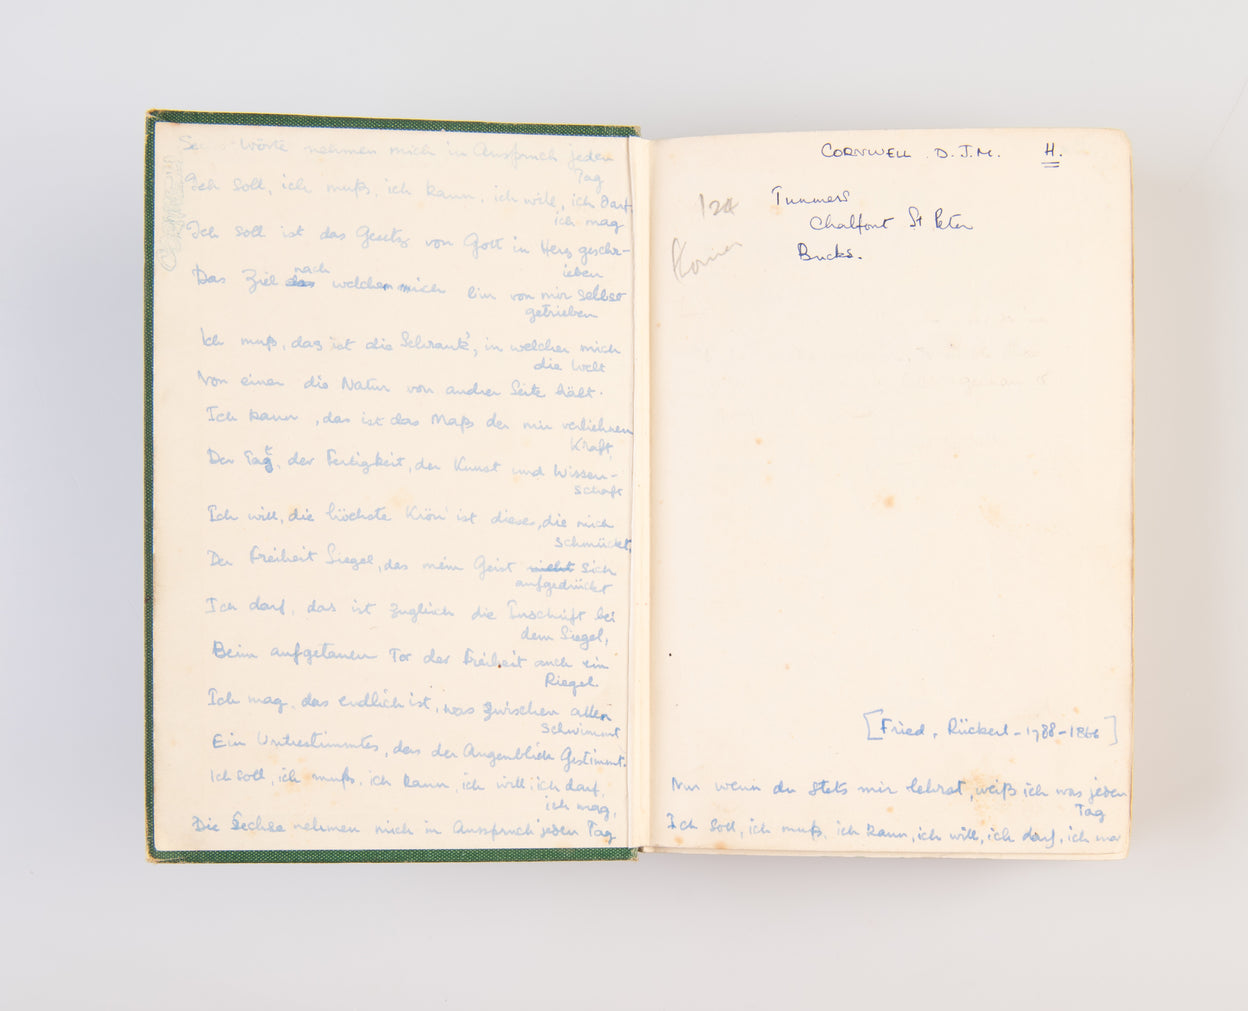 Sechs Wörte nehmen mich in Anspruch jeden
Tag
Ich soll, ich muß, ich kann, ich will, ich darf,
ich mag
Ich soll ist das Gesetz von Gott in Herz geschr-
ieben
Das Ziel das nach welchen mich bin von mir selbst
getrieben
Ich muß, das ist die Schrank', in welcher mich
die Welt
Von einer die Natur von andrer Seite hält.
Ich kann, das ist das Maß der mir verliehnen
Kraft,
Der Tat, der Fertigkeit, der Kunst und Wissen-
schaft
Ich will, die höchste Kron' ist dieses, die mich
schmückt,
Der Freiheit Siegel, das mein Geist nicht sich
aufgedrückt
Ich darf, das ist zugleich die Inschrift bei
dem Siegel,
Beim aufgetanen Tor der Freiheit auch ein
Riegel.
Ich mag, das endlich ist, was zwischen allen
schwimmt
Ein Unbestimmtes, das der Augenblick Gestimmt.
Ich soll, ich muß, ich kann, ich will, ich darf,
ich mag,
Die Sechse nehmen mich in Anspruch jeden Tag
CORNWELL D. J. M. H.
Tunmers
Chalfont St Peter
Bucks.
[Fried. Rückert - 1788-1866]
Nur wenn du stets mir lehrst, weiß ich was jeden
Tag
Ich soll, ich muß, ich kann, ich will, ich darf, ich ma